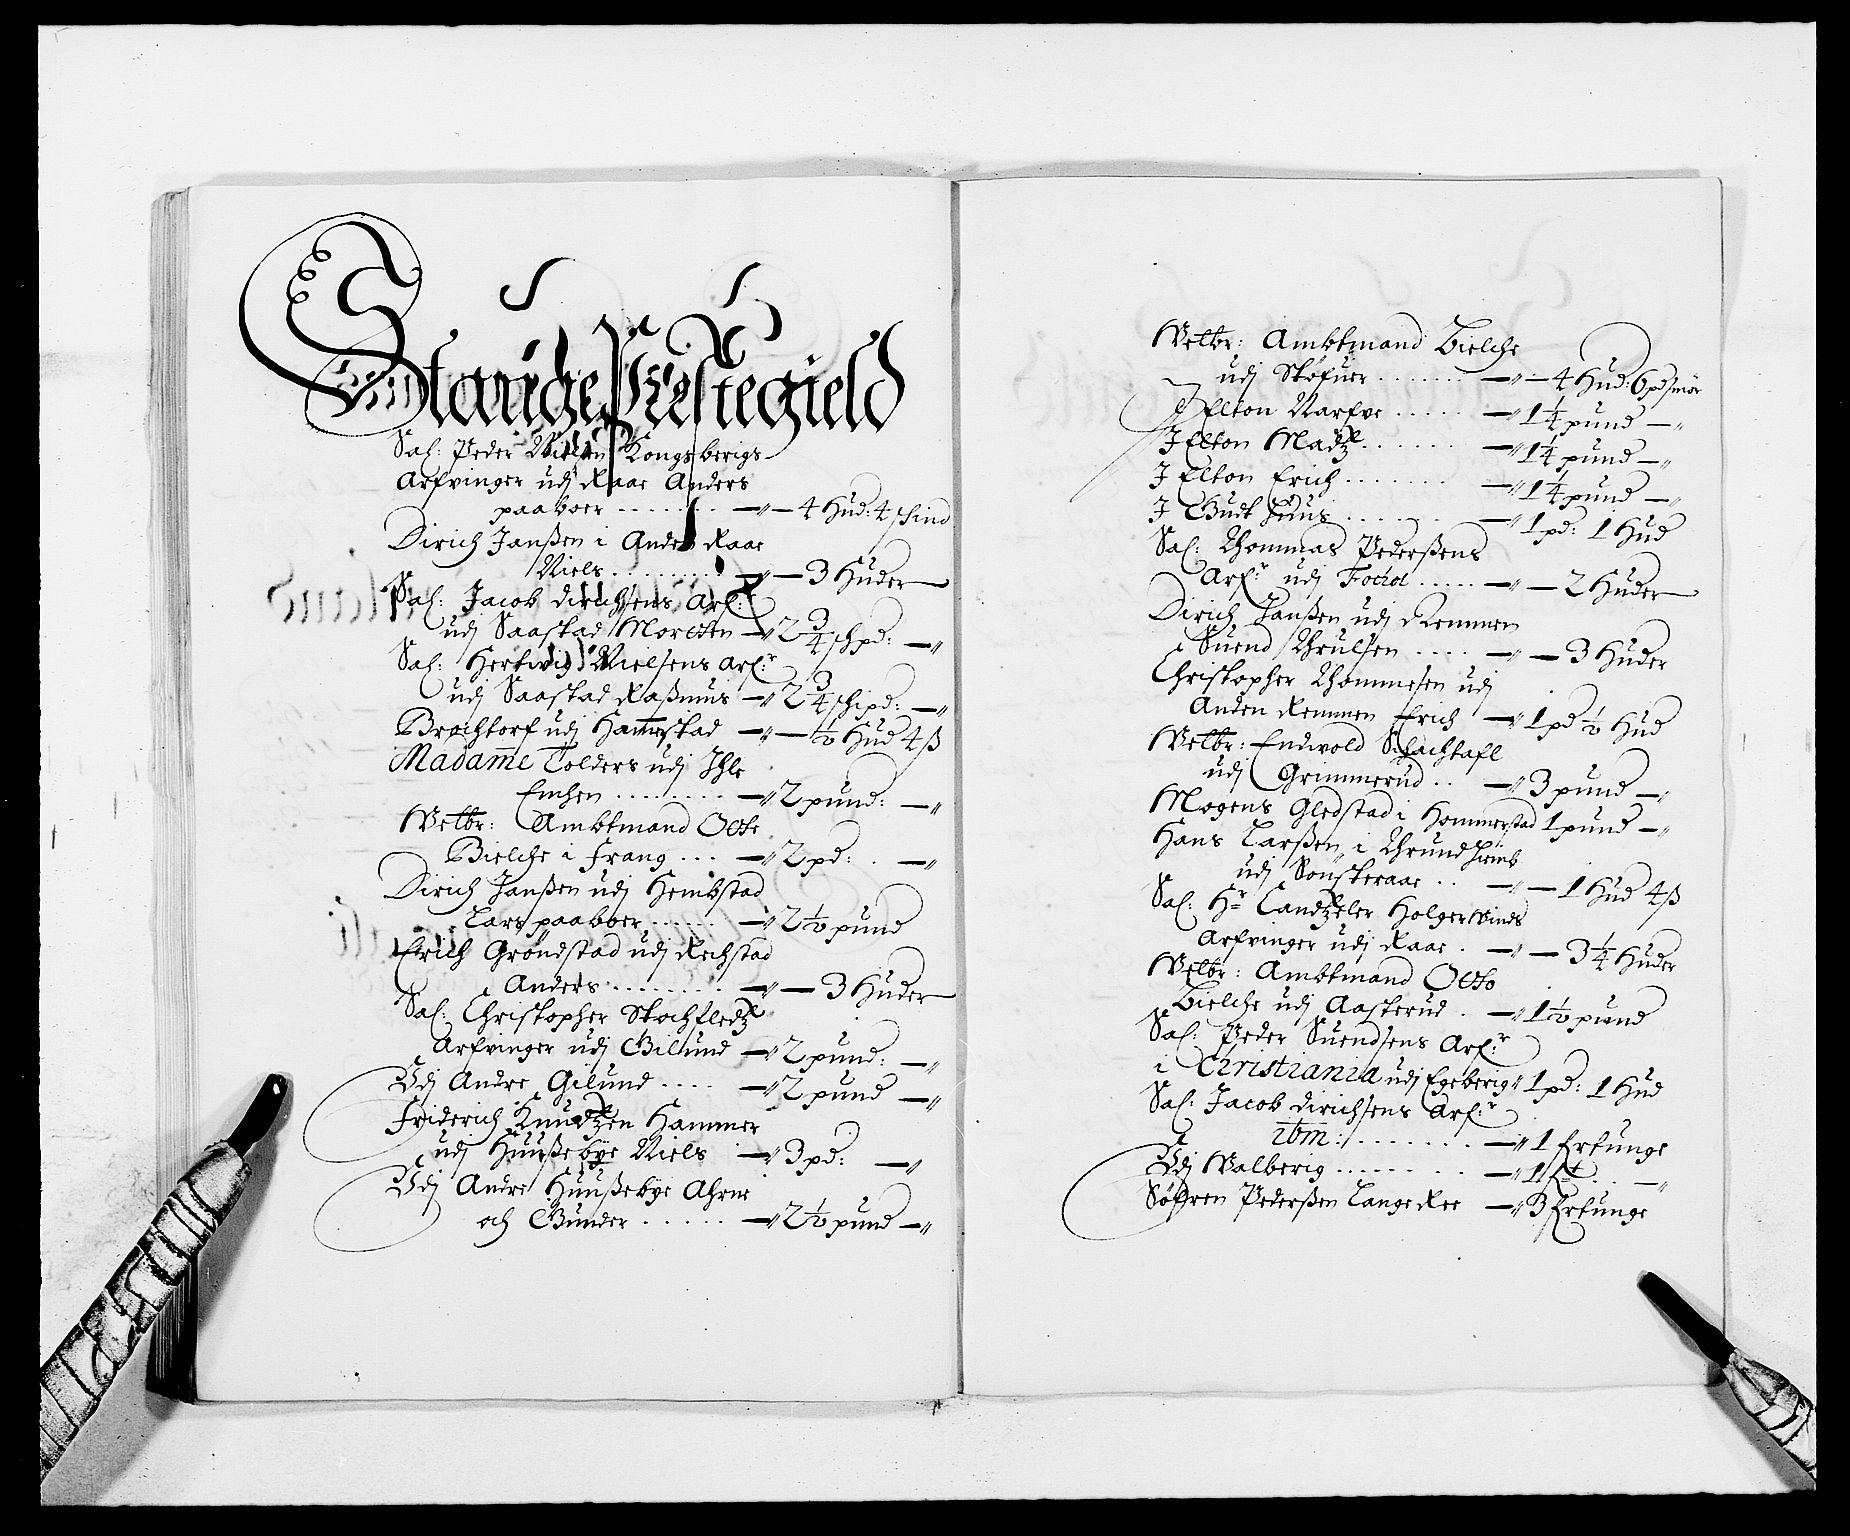 Stange Prestegield
Sal: Peder Nielsen Kongsberigs
Arfvinger udj Raae Anders
paaboer ....... —„— 4 Hud: 4 schind
Dirich Janßen i Andre Raae
Niels ........ —„— 3 Huder
Sal: Jacob Dirichsens Arf:r
udj Saastad Morthen —„ 2 3/4 schpd: —„
Sal: Hertvig Nielsens Arf:r
udj Saastad Raßmus —„ 2 3/4 schipd: —„
Brochtorf udj Hammerstad —„— ½ Hud 4 ß
Madame Tolders udj Ihle
Emhen ........ —„ 2 pund: —„
Welbr: Ambtmand Otte
Bielche i Frang ... —„ 2 pd: . —„
Dirich Janßen udj Hembstad
Lars paaboer ...... —„ 2 ½ pund
Erich Gröndstad udj Rechstad
Anders ........ —„— 3 Huder
Sal: Christopher Stochfledz
Arfvinger udj Gillund —„ 2 pund: —„
Udj Andre Gilund .... —„ 2 pund —„
Friderich Knudzen Hammer
udj Huußebye Niels —„ 3 pd: —„
Udj Andre Huußebye Ahrne
och Gunder ..... —„ 2 ½ pund —„
Welbr: Ambtmand Bielche
udj Skøfuer ....... —„— 4 Hud: 6 pd smör
J Elton Narfve ..... —„ 1 ¼ pund —„
J Elton Madz ....... —„ 1 ¼ pund —„
J Elton Erich ....... —„ 1 ¼ pund —„
J Gudt Huus ....... —„ 1 pd: 1 Hud
Sal: Thommas Pederßens
Arf:r udj Fochol ..... —„— 2 Huder
Dirich Janßen udj Remmen
Suend Thrulsen .... —„— 3 Huder
Christopher Thommesen udj
Anden Remmen Erich —„ 1 pd ½ Hud
Welbr: Endvold Schachtafl
udj Grimmerud .. —„ 3 pund —„
Mogens Gledstad i Hommerstad 1 pund —„
Hans Larßen i Thrundhiemb
udj Sönsteraae .. —„— 1 Hud 4 ß
Sal: Hr Candzeler Holger Winds
Arfvinger udj Raae . —„— 3 ¼ Huder
Welbr: Ambtmand Otto
Bielche udj Aasterud . —„ 1 ½ pund
Sal: Peder Suendsens Arf:r
i Christiania udj Egeberig „ 1 pd: 1 Hud
Sal: Jacob Dirichsens Arf:r
itm: ....... —„ 1 Fertunge
Udj Walberig ........ —„ 1 Ft .. —„
Søfren Pederßen Lange Ree —„ 3 Fertunge